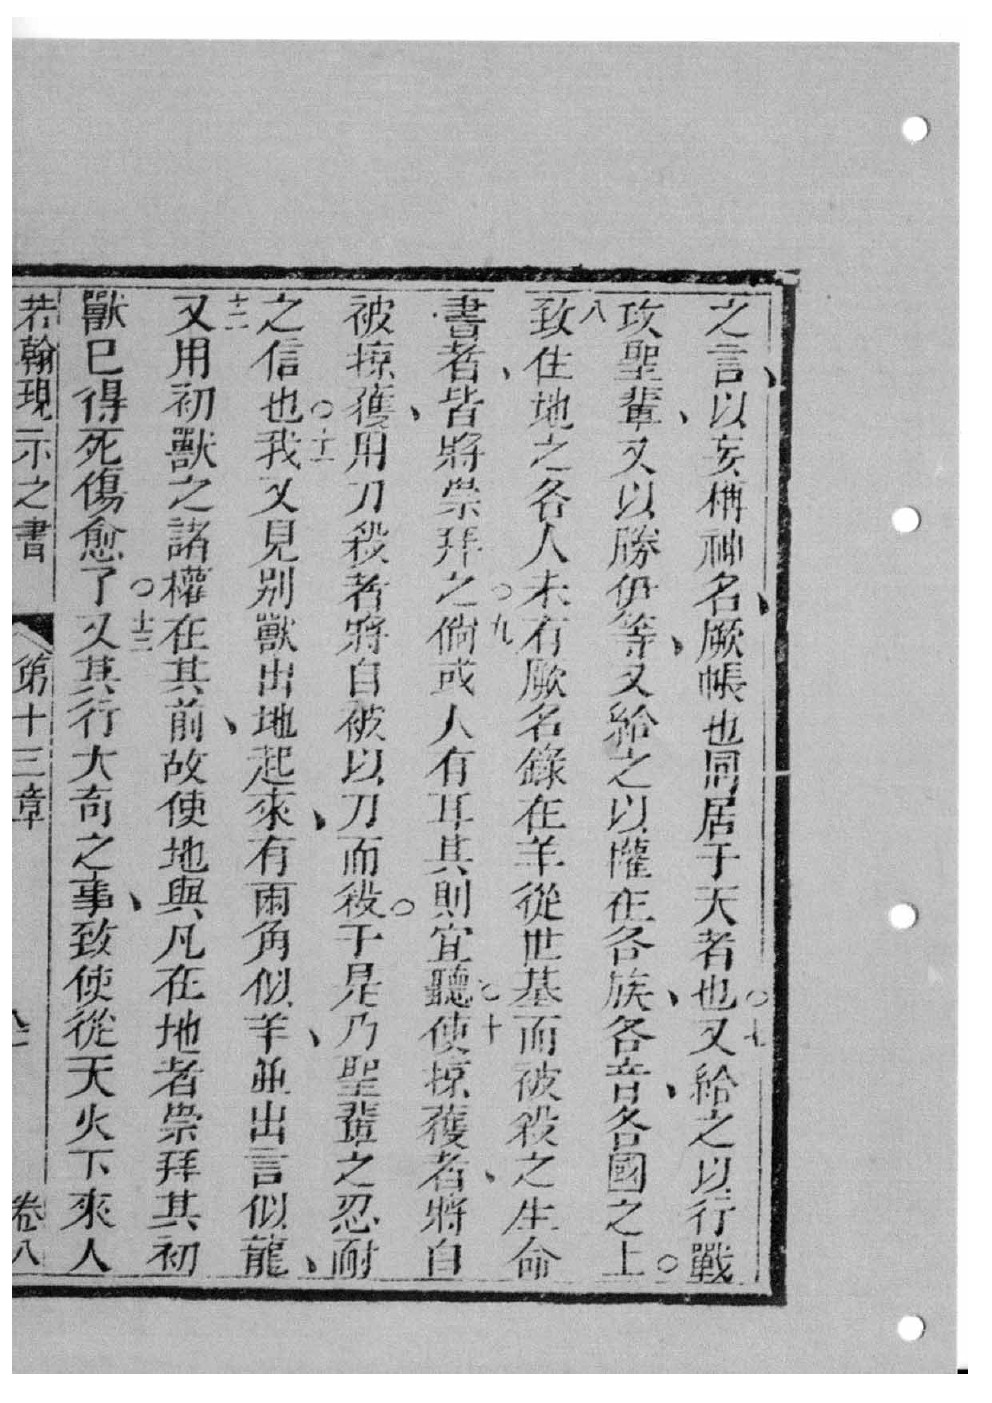 之言、以妄稱神名、厥帳也同居于天者也○七又給之以行戰
攻聖輩、又以勝伊等、又給之以權在各族、各音、各國之上○
八致住地之各人未有厥名錄在羊從世基而被殺之生命
書者、皆將崇拜之○九倘或人有耳其則宜聽○十使掠獲者、將自
被掠獲、用刀殺者將自被以刀而殺○于是乃聖輩之忍耐
之信也○十一我又見別獸出地起來、有兩角似羊、並出言似龍、
十二又用初獸之諸權在其前、故使地與凡在地者崇拜其初
獸已得死傷愈了○十三又其行大奇之事、致使從天火下來人
若翰現示之書 第十三章 卷八